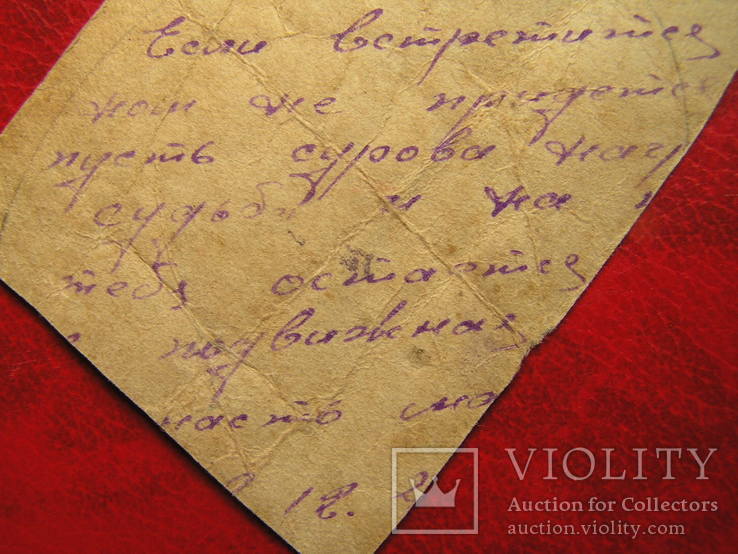 Если встретится
нам не придется
пусть сурова наш
судьба и на п
тебе остается
подвижная
часть мо
12.
VIOLITY
Auction for Collectors
auction.violity.com